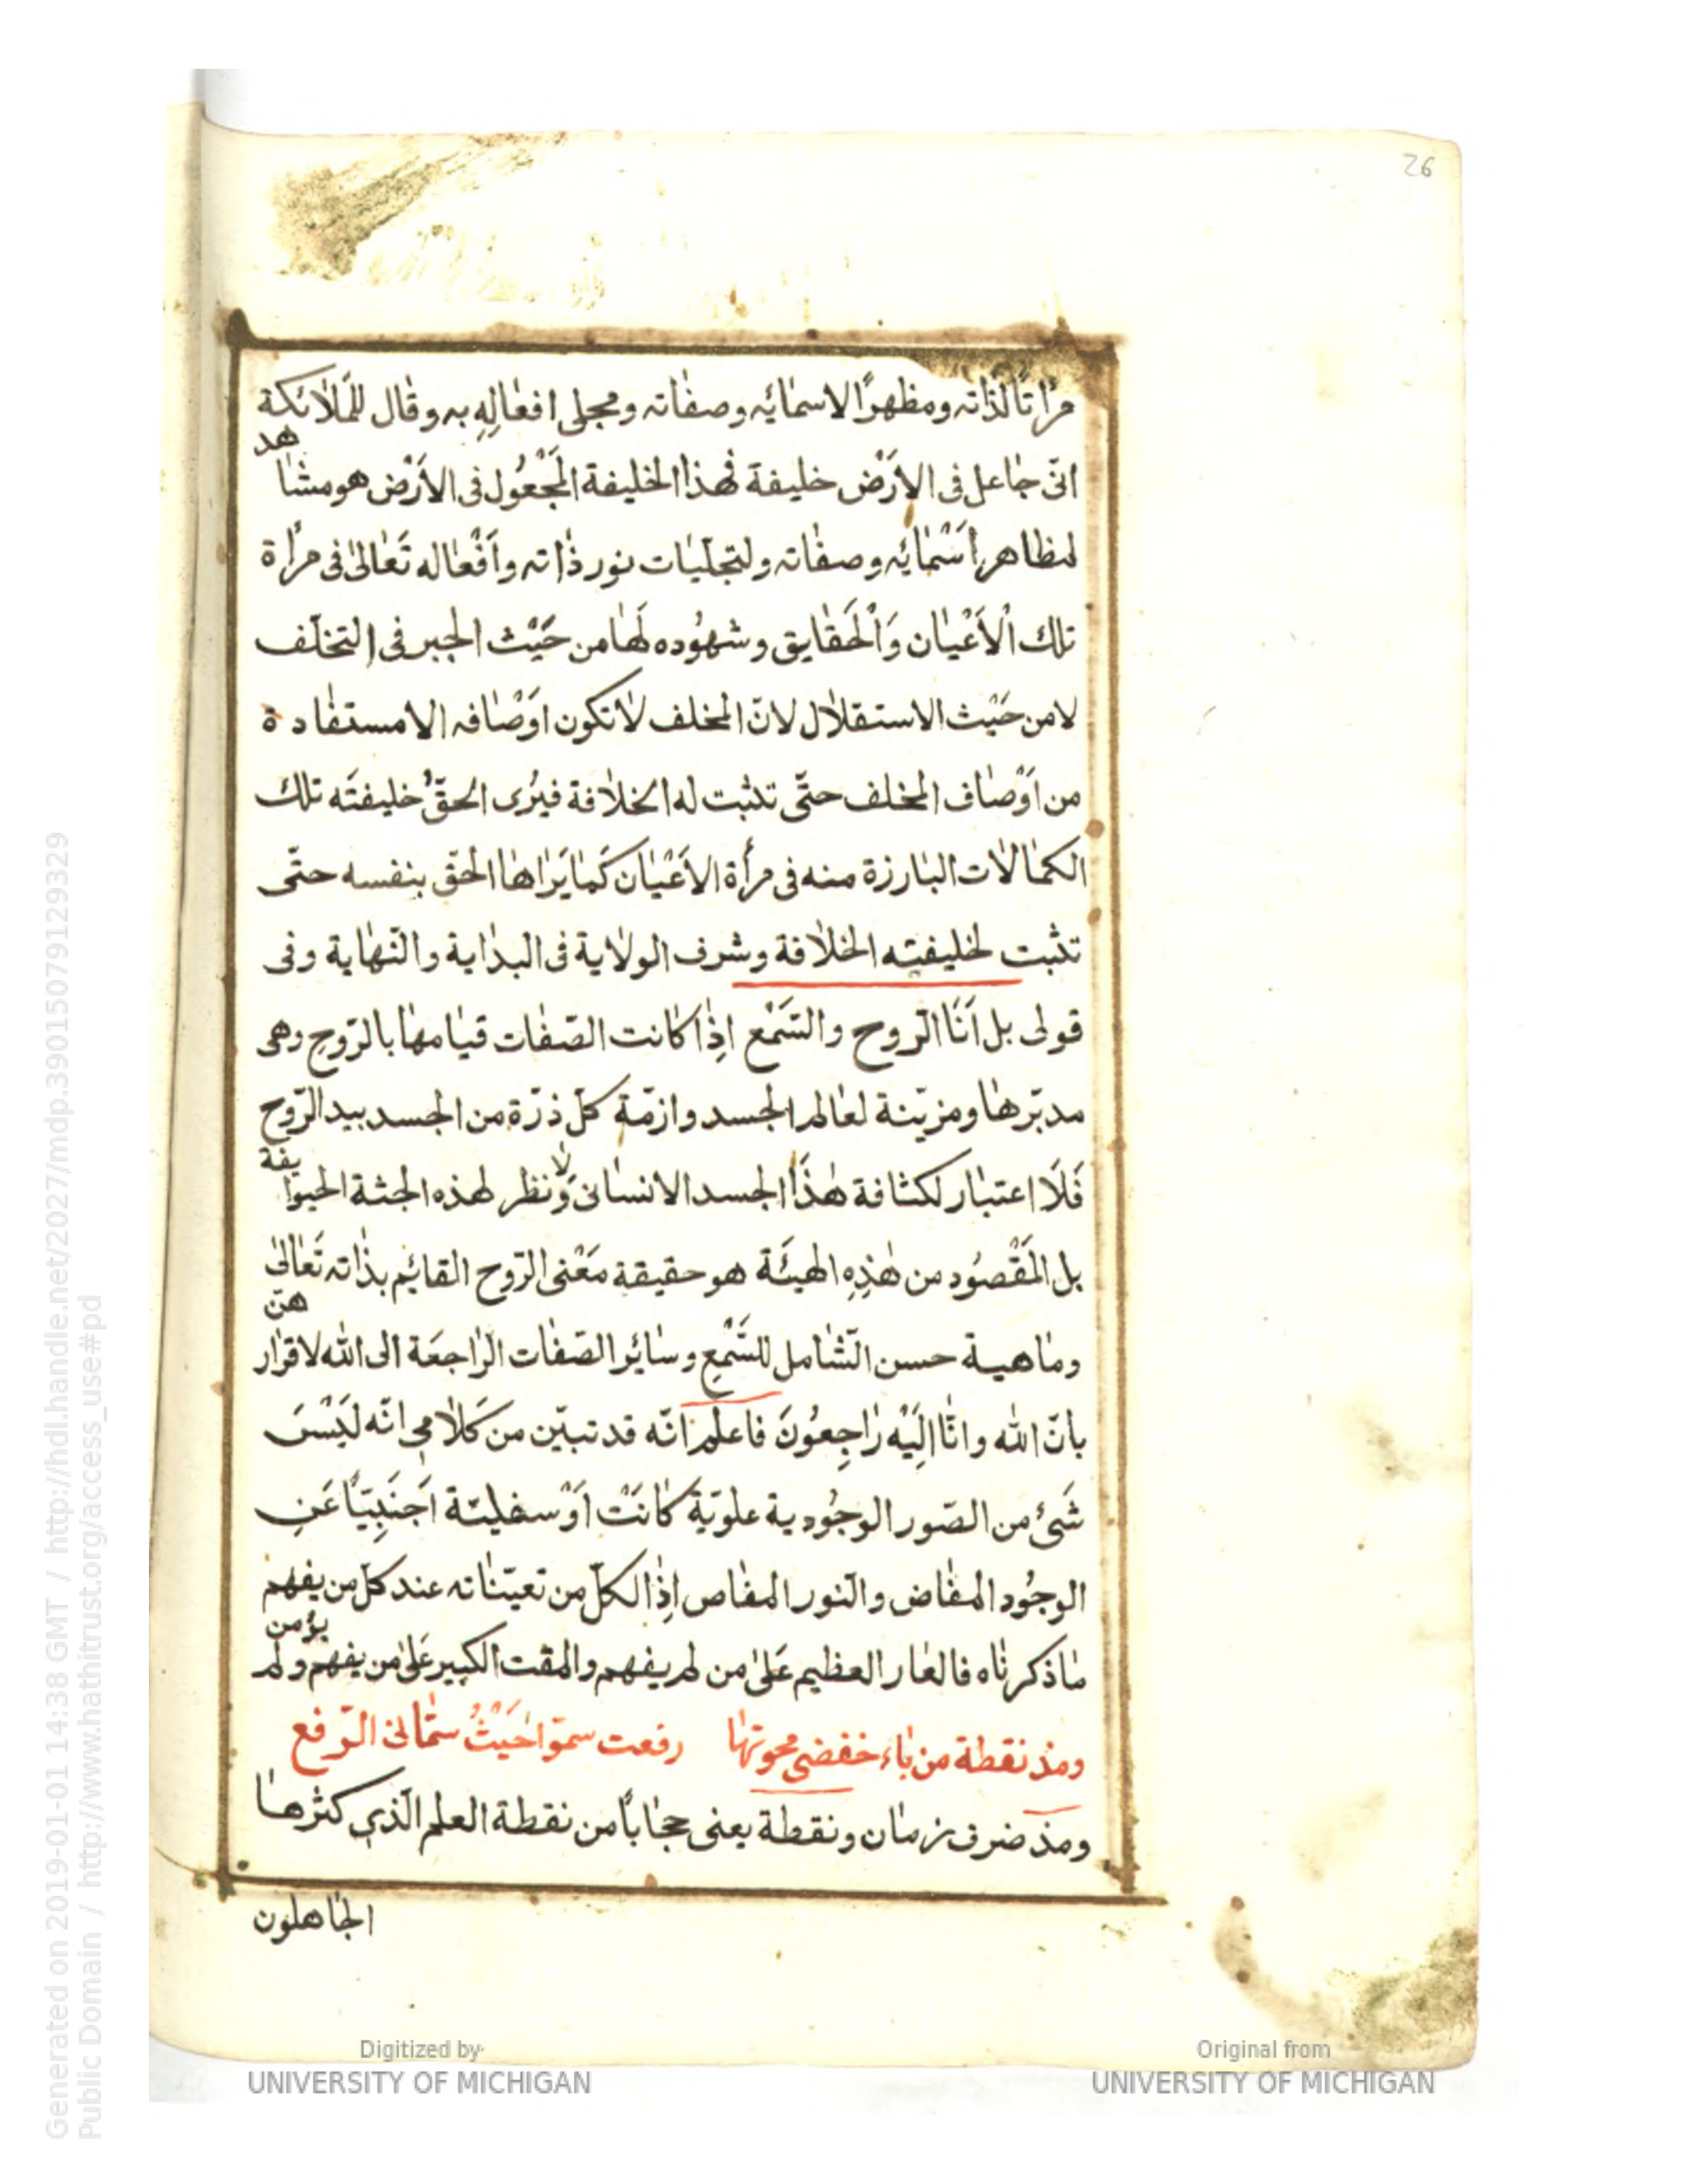 26
مرٰاتًا لذاته ومظهرًا لاسمائه وصفاته ومجلى افعالِهِ به وقال للمَلائكة
انّى جاعل فى الاَرْض خليفة فهذا الخليفة المَجْعُول فى الاَرْض هو مشاهد
لمظاهر اَسْمائِه وصفاته ولتجلّيات نور ذاته واَفْعاله تَعَالىٰ فى مرأة
تلك اْلاَعْيان وَاْلحَقايق وشهُوده لَها من حَيْث الجبر فى التخلّف
لا من حَيْث الاستقلال لانّ المخلف لا تكون اوَصْافه الا مستفادة
من اَوْصاف المخلف حتّى تثبت له الخلافة فيُرى الحقّ خليفتَه تلك
الكمالات البارزة منه فى مرأة الاَعْيان كَما يَراها الحقّ بنفسه حتّى
تثبت لخليفته الخلافة وشرف الولاية فى البداية والنّهاية وفى
قولى بل اَنَا الرّوح والسَّمْع اِذا كانت الصّفات قيامها بالرّوح وهى
مدبّرها ومزيّنة لعالم الجسد وازمّة كلّ ذرّة من الجسد بيد الرّوح
فَلَا اعتبار لكثافة هٰذَا الجسد الانسانى وَلا نظر لهذه الجثة الحيوانية
بل المَقْصُود من هٰذِهِ الهيئَة هو حقيقة مَعْنى الرّوح القائِم بذاته تَعَالىٰ
وماهية حسن الشّامل للسَّمْعِ وسائِر الصّفات الرّاجعَة الى الله لاقرارهنّ
بانّ الله وانّا اِلَيْه رٰاجِعُونَ فاعلم انّه قد تبيّن من كَلامى انّه لَيْسَ
شَئ من الصّور الوجُودية علويّة كانَتْ اَوْ سفليّة اَجنَبِيّا عَنِ
الوجُود المفاض والنّور المفاص اِذِ الكلّ من تعيّناته عند كلّ من يفهم
ما ذكرناه فالعار العظيم عَلىٰ من لم يفهم والمقت الكبير عَلىٰ من يفهم ولم يؤمن
ومذ نقطة من باء خفضى محوتها رفعت سموّا حَيْثُ شمّانى الرّفع
ومذ ضرف زمان ونقطة يعنى حجاباً من نقطة العلم الّذى كثرها
الجاهلون
Digitized by
UNIVERSITY OF MICHIGAN
Original from
UNIVERSITY OF MICHIGAN
Generated on 2019-01-01 14:38 GMT / http://hdl.handle.net/2027/mdp.39015079129329
Public Domain / http://www.hathitrust.org/access_use#pd